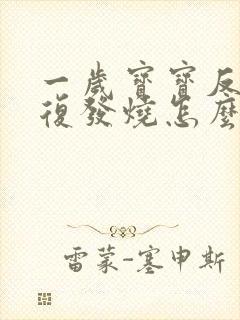 一歲寶寶反
復發燒怎麼
雷蒙-塞申斯